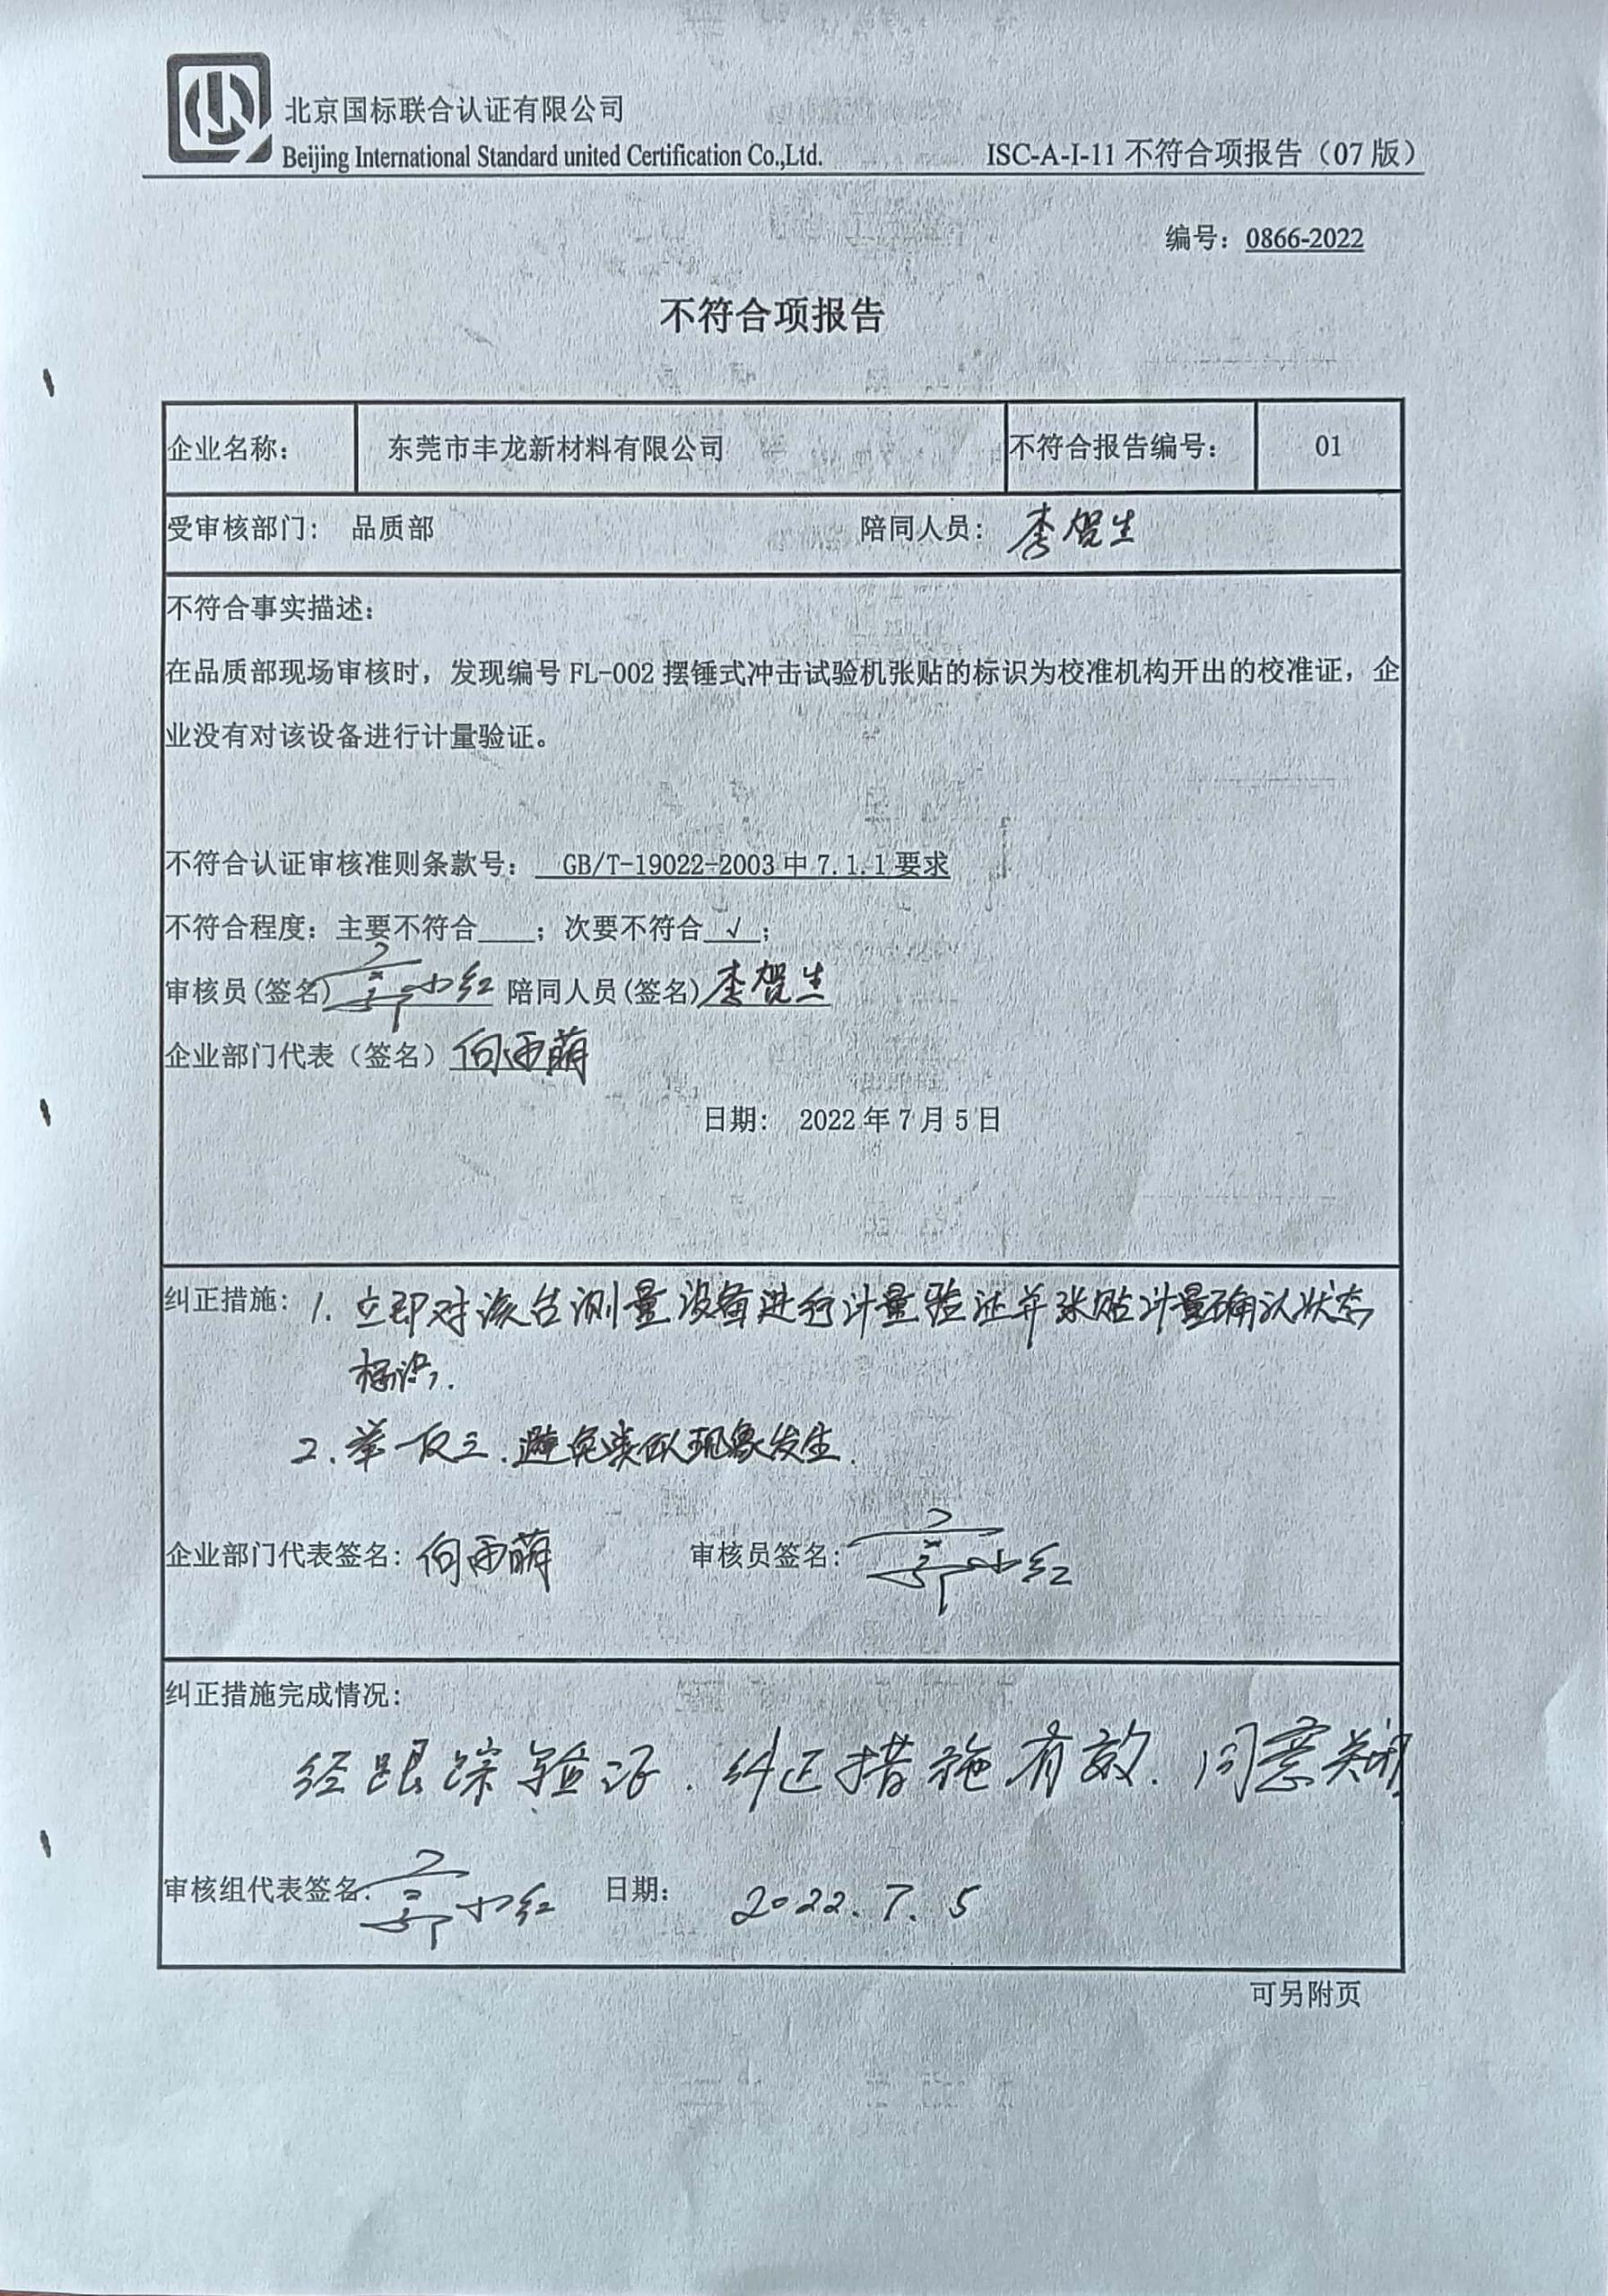 北京国标联合认证有限公司
Beijing International Standard united Certification Co.,Ltd.
ISC-A-I-11 不符合项报告（07 版）
编号：0866-2022
不符合项报告
企业名称： 东莞市丰龙新材料有限公司 不符合报告编号： 01
受审核部门： 品质部 陪同人员： 李贺生
不符合事实描述：
在品质部现场审核时，发现编号 FL-002 摆锤式冲击试验机张贴的标识为校准机构开出的校准证，企
业没有对该设备进行计量验证。
不符合认证审核准则条款号： GB/T-19022-2003 中 7.1.1 要求
不符合程度：主要不符合____；次要不符合 √ ；
审核员(签名) 小红 陪同人员(签名) 李贺生
企业部门代表（签名）向雨萌
日期： 2022 年 7 月 5 日
纠正措施：1. 立即对该台测量设备进行计量验证并张贴计量确认状态
标识.
2. 举一反三.避免类似现象发生.
企业部门代表签名：向雨萌 审核员签名： 小红
纠正措施完成情况：
经跟踪验证. 纠正措施有效. 同意关闭
审核组代表签名： 小红 日期： 2022.7.5
可另附页